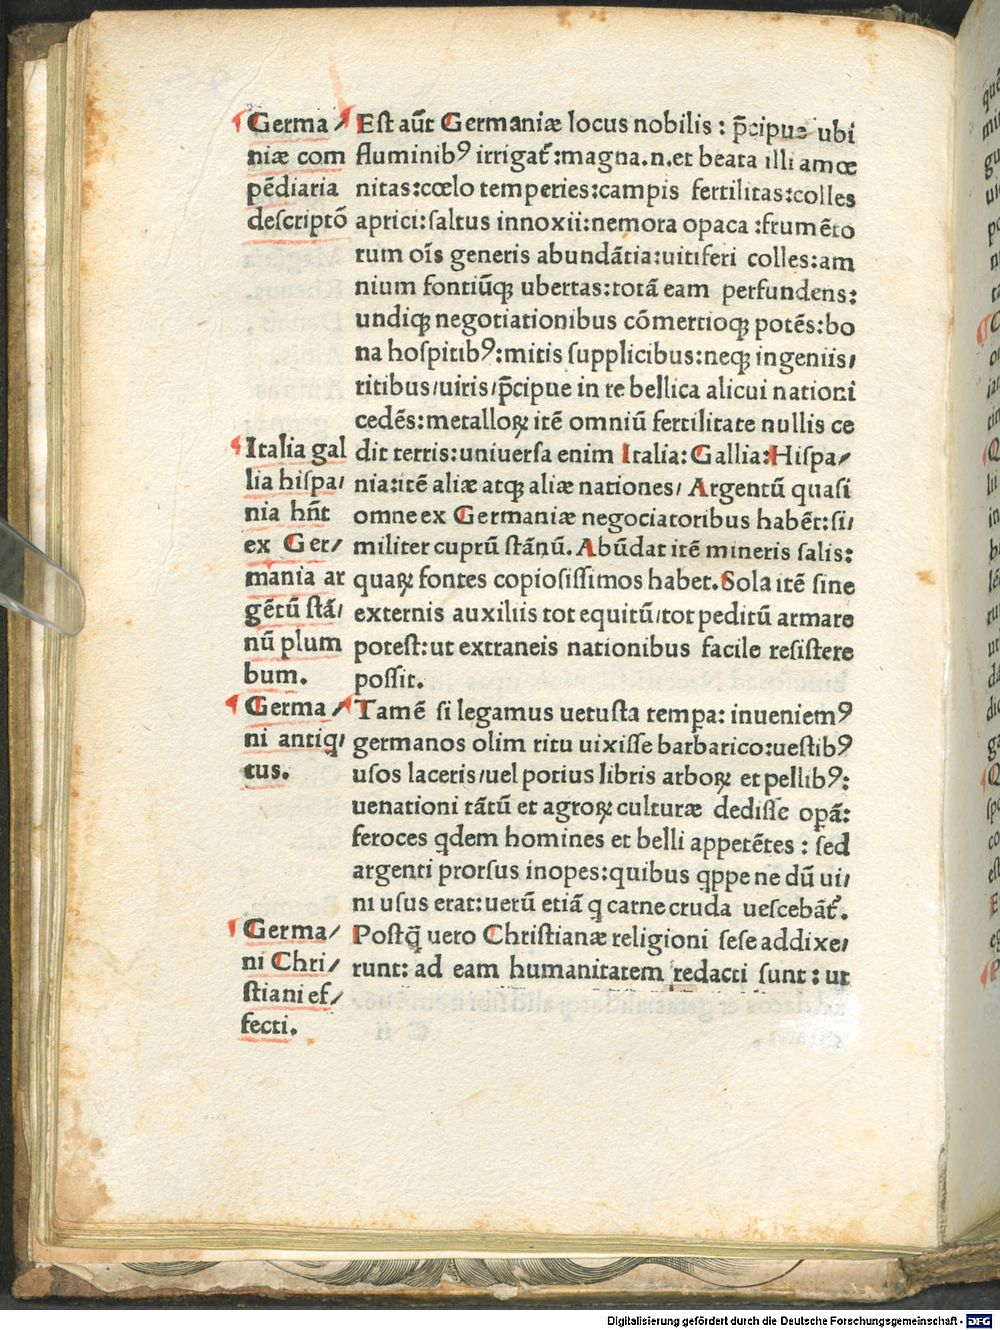 Germa⸗
niæ com
pēdiaria
descriptō
Italia gal
lia hiſpa⸗
nia hn̄t
ex Ger⸗
mania ar
gētū ſtā⸗
nū plum
bum.
Germa⸗
ni antiq⸗
tus.
Germa⸗
ni Chri⸗
ſtiani ef⸗
fecti.
Eſt aūt Germaniæ locus nobilis : p̄cipue ubi
fluminibꝰ irrigat᷑ :magna.n.et beata illi amœ
nitas:cœlo temperies:campis fertilitas:colles
aprici:ſaltus innoxii:nemora opaca :frumēto
rum oīs generis abundātia:uitiferi colles:am
nium fontiūqꝫ ubertas:totā eam perfundens:
undiqꝫ negotiationibus cōmertioqꝫ potēs:bo
na hoſpitibꝰ:mitis ſupplicibus:neqꝫ ingeniis/
ritibus/uiris/p̄cipue in re bellica alicui nationi
cedēs:metalloꝝ itē omniū fertilitate nullis ce
dit terris:uniuerſa enim Italia: Gallia:Hiſpa⸗
nia:itē aliæ atqꝫ aliæ nationes/ Argentū quaſi
omne ex Germaniæ negociatoribus habēt:ſi⸗
militer cuprū ſtānū. Abūdat itē mineris ſalis:
quaꝝ fontes copioſiſſimos habet.Sola itē ſine
externis auxiliis tot equitū/tot peditū armare
poteſt:ut extraneis nationibus facile reſiſtere
poſſit.
Tamē ſi legamus uetuſta tempa: inueniemꝰ
germanos olim ritu uixiſſe barbarico:ueſtibꝰ
uſos laceris/uel potius libris arboꝝ et pellibꝰ:
uenationi tātū et agroꝝ culturæ dediſſe opā:
feroces qdem homines et belli appetētes : ſed
argenti prorſus inopes:quibus qppe ne dū ui⸗
ni uſus erat:uerū etiā q carne cruda ueſcebāt᷑.
Poſtq̄ uero Chriſtianæ religioni ſeſe addixe⸗
runt: ad eam humanitatem redacti ſunt : ut
Digitalisierung gefördert durch die Deutsche Forschungsgemeinschaft - DFG